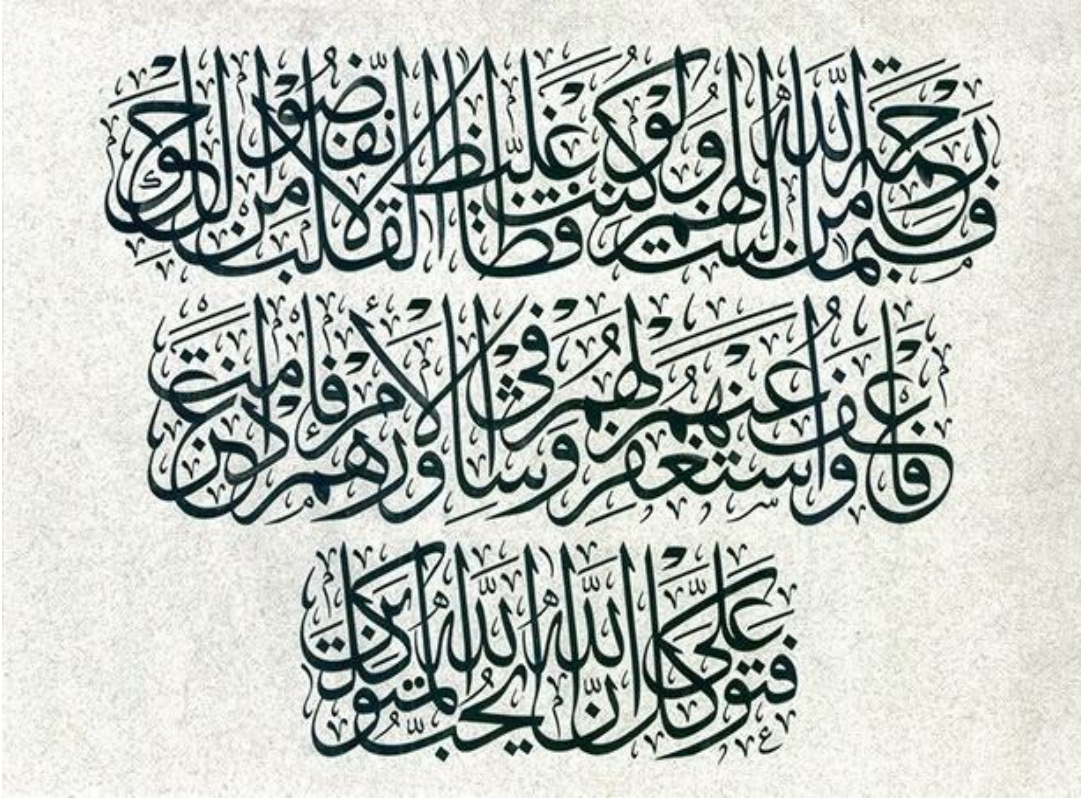 فبما رحمة من الله لنت لهم ولو كنت فظا غليظ القلب لانفضوا من حولك
فاعف عنهم واستغفر لهم وشاورهم في الأمر فإذا عزمت
فتوكل على الله إن الله يحب المتوكلين